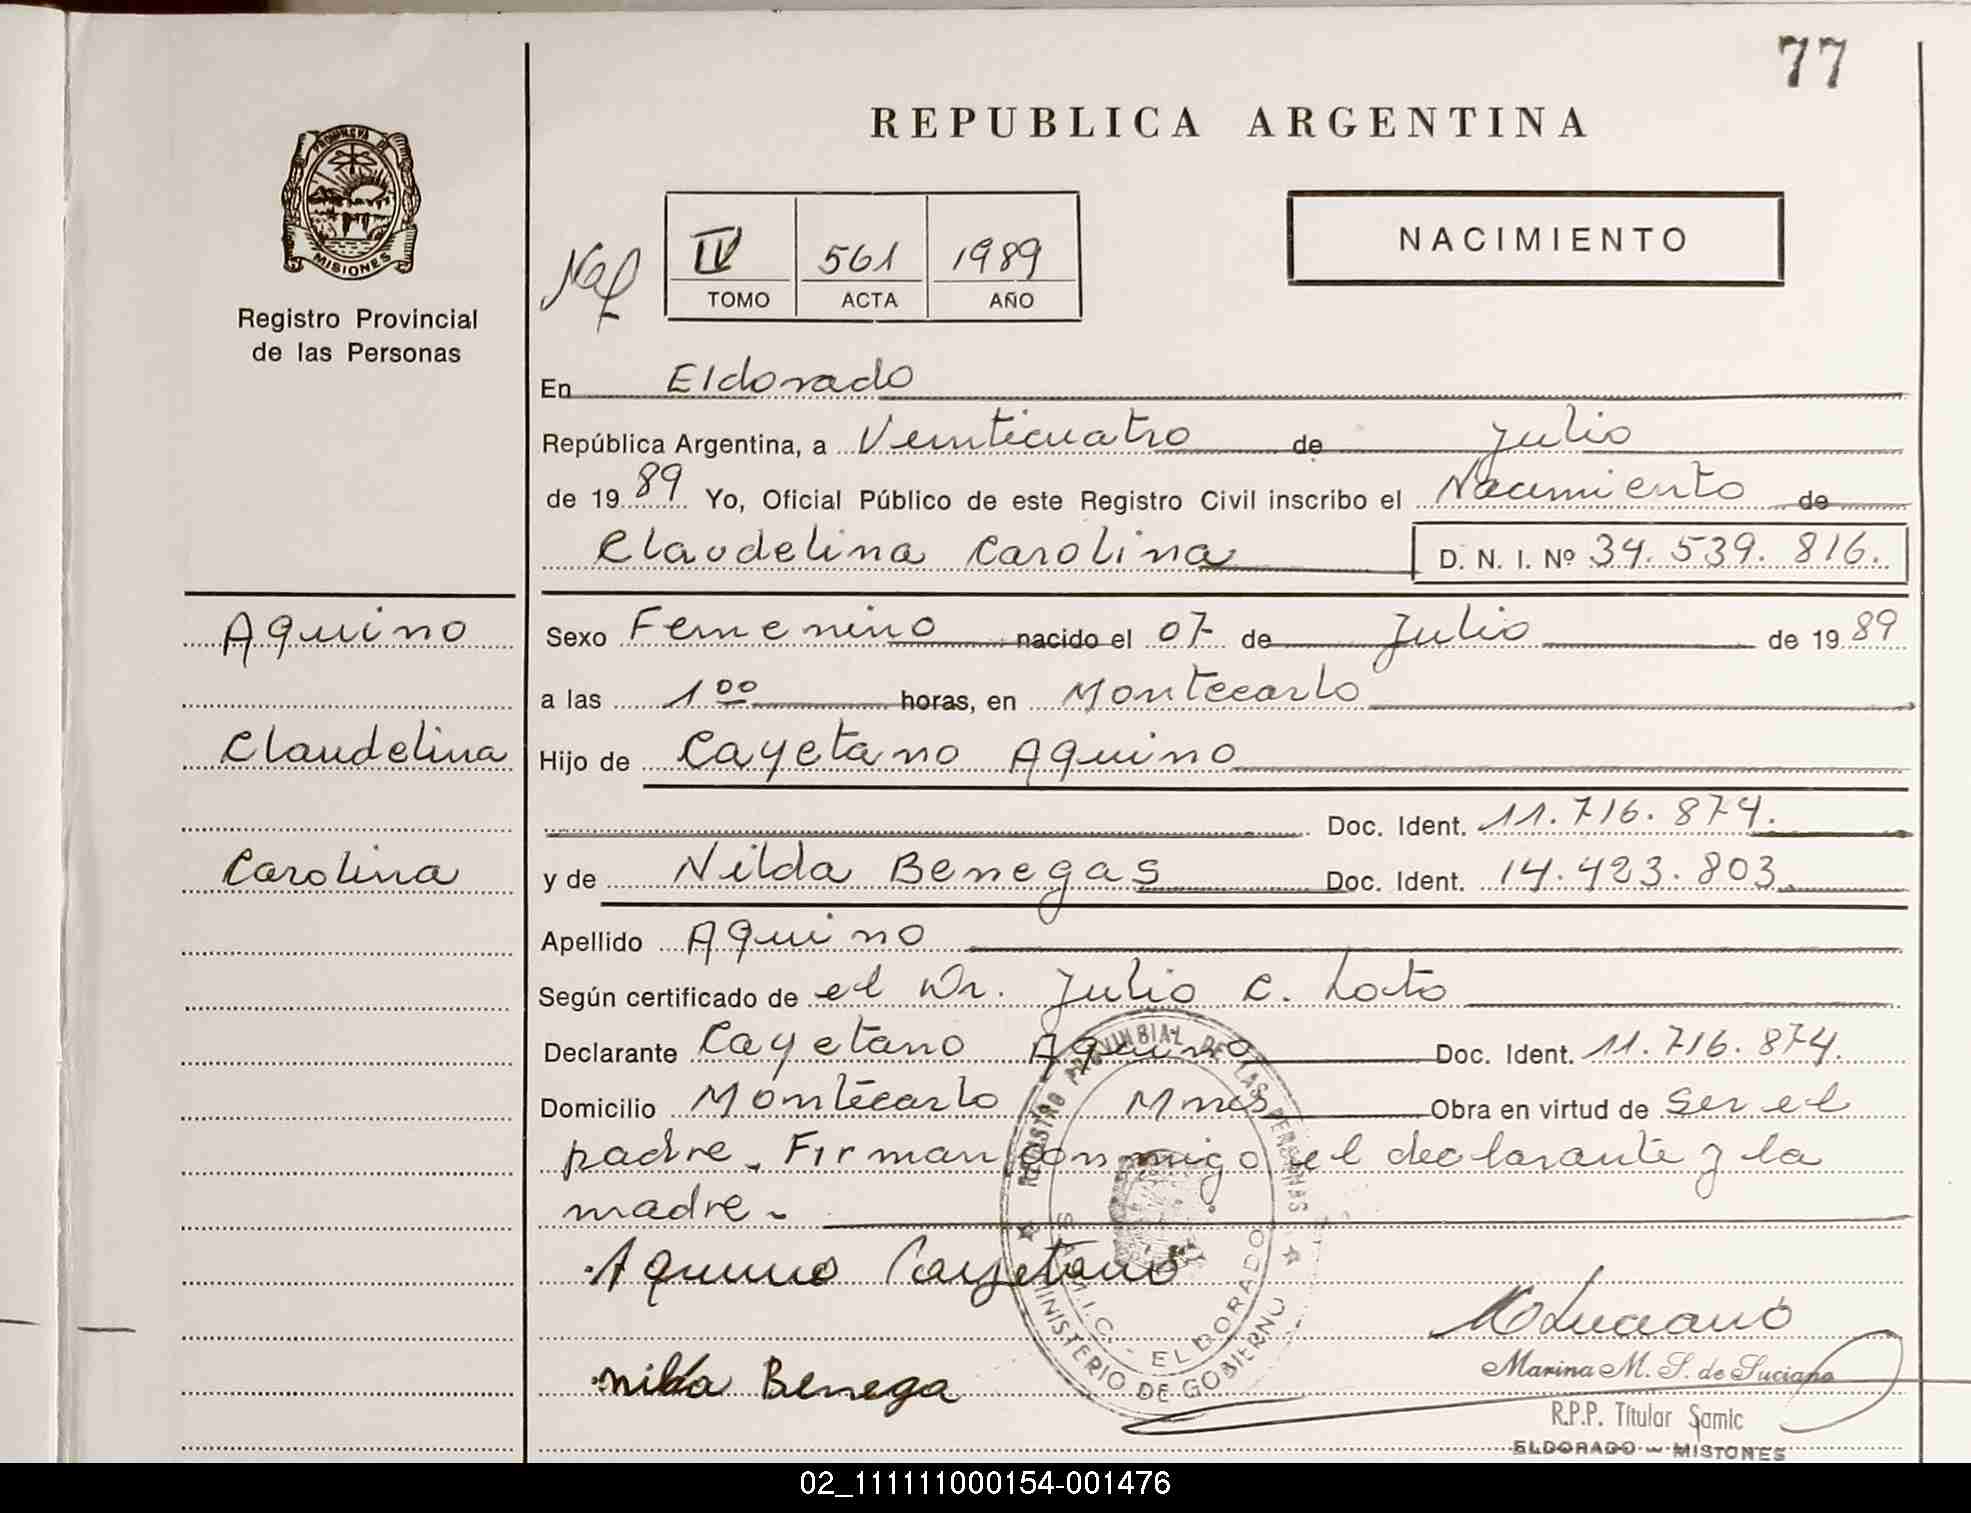 77
REPUBLICA ARGENTINA
PROVINCIA DE
MISIONES
Registro Provincial
de las Personas
IV 561 1989
TOMO ACTA AÑO
NACIMIENTO
En Eldorado
República Argentina, a Veinticuatro de Julio
de 1989 Yo, Oficial Público de este Registro Civil inscribo el Nacimiento de
Claudelina Carolina D. N. I. Nº 34.539.816.
Aquino
Sexo Femenino nacido el 07 de Julio de 1989
a las 1 00 horas, en Montecarlo
Claudelina
Hijo de Cayetano Aquino
Doc. Ident. 11.716.874.
Carolina
y de Nilda Benegas Doc. Ident. 14.423.803
Apellido Aquino
Según certificado de el Dr. Julio C. Loto
Declarante Cayetano Aquino Doc. Ident. 11.716.874.
Domicilio Montecarlo Mnes Obra en virtud de ser el
padre. Firman conmigo el declarante y la
madre.
Aquino Cayetano
nilda Benega
REGISTRO PROVINCIAL DE LAS PERSONAS
MINISTERIO DE GOBIERNO
S.A.M.I.C. - ELDORADO
Marina M. S. de Luciano
R.P.P. Titular Samic
ELDORADO - MISIONES
02_111111000154-001476